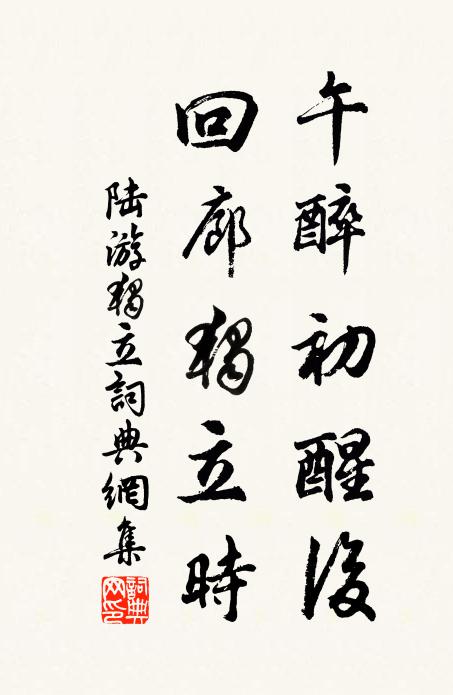 午醉初醒後
回廊獨立時
陸游獨立詞典網集
詞典網印